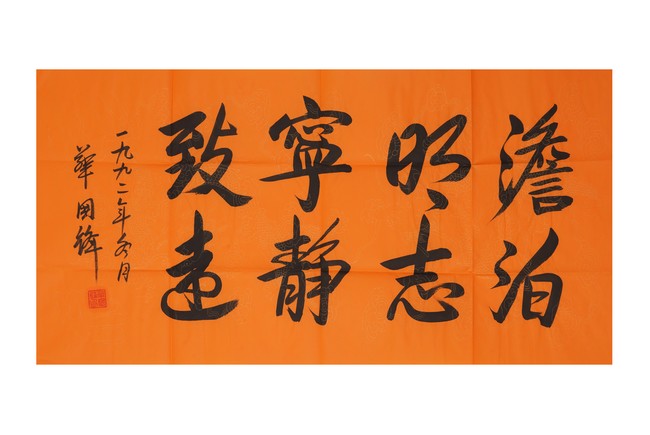 澹泊
明志
寧静
致远
一九九二年冬月
華国鋒